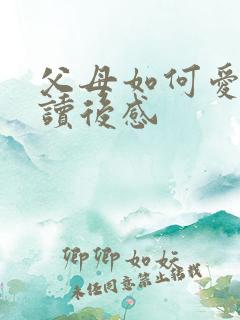 父母如何愛
讀後感
卿卿如妧
未经同意禁止转载